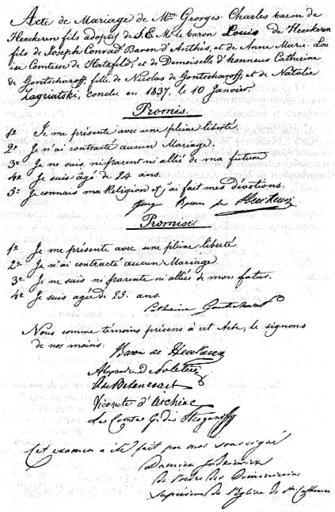 Acte de Mariage de Mr. Georges Charles baron de
Heeckeren fils adoptif de S. E. Mr le baron Louis de Heeckeren
fils de Joseph Conrad Baron d'Anthès, et de Anne Marie Lou
ise Comtesse de Hatzfeld, et de Demoiselle d'honneur Catherine
de Gontscharoff fille de Nicolas de Gontscharoff et de Natalie
Zagriatski, conclu en 1837, le 10 Janvier.
Promis.
1º Je me présente avec une pleine liberté.
2º Je n'ai contracté aucun Mariage.
3º Je ne suis ni parent ni allié de ma future
4º Je suis agé de 24 ans.
5º Je connais ma Religion et j'ai fait mes dévotions.
Baron de Heeckeren
Promise
1º Je me présente avec une pleine liberté
2º Je n'ai contracté aucun Mariage
3º Je ne suis ni parente ni alliée de mon futur.
4º Je suis agée de 25. ans.
Gontscharoff
Nous comme témoins présens à cet Acte, le signons
de nos mains.
Baron de Heeckeren
Vicomte d'Archiac
Le Comte G. de Stroganoff
Cet examen a été fait par moi soussigné
Damien
de l'ordre des Dominicains
Supérieur de l'Eglise de Ste Catherine